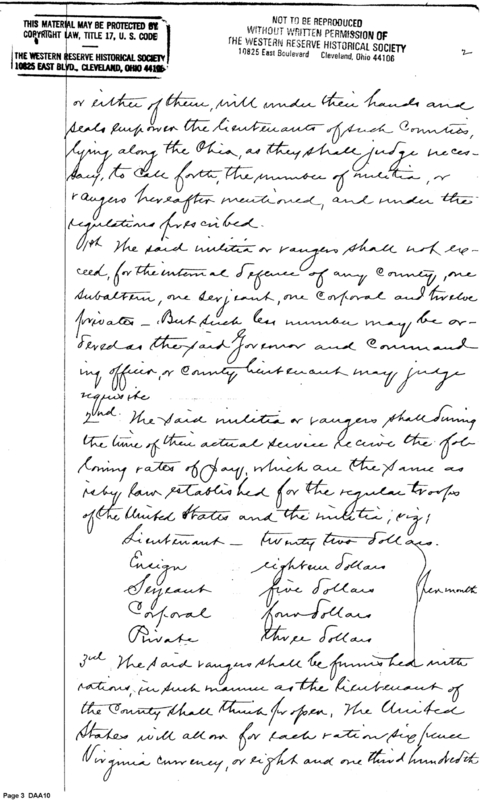 THIS MATERIAL MAY BE PROTECTED BY
COPYRIGHT LAW, TITLE 17, U. S. CODE
THE WESTERN RESERVE HISTORICAL SOCIETY
10825 EAST BLVD., CLEVELAND, OHIO 44106
NOT TO BE REPRODUCED
WITHOUT WRITTEN PERMISSION OF
THE WESTERN RESERVE HISTORICAL SOCIETY
10825 East Boulevard Cleveland, Ohio 44106
2
or either of them, will under their hands and
seals empower the lieutenants of such Counties,
lying along the Ohio, as they shall judge neces-
sary, to call forth, the number of militia, or
rangers hereafter mentioned, and under the
regulations prescribed.
1st The said militia or rangers shall not ex-
ceed, for the internal defence of any County, one
subaltern, one serjeant, one Corporal and twelve
privates – But such less number may be or-
dered as the said Governor and Command
ing officer, or County lieutenant may judge
requisite
2nd. The said militia or rangers shall during
the time of their actual service receive the fol-
lowing rates of pay, which are the same as
is by law established for the regular troops
of the United States and the militia, viz;
Lieutenant – twenty two dollars.
Ensign eighteen dollars
Serjeant five dollars
Corporal four dollars
Private three dollars
per month
3rd The said rangers shall be furnished with
rations, in such manner as the lieutenant of
the County shall think proper. The United
States will allow for each ration six pence
Virginia currency, or eight and one third hundredth
Page 3 DAA10